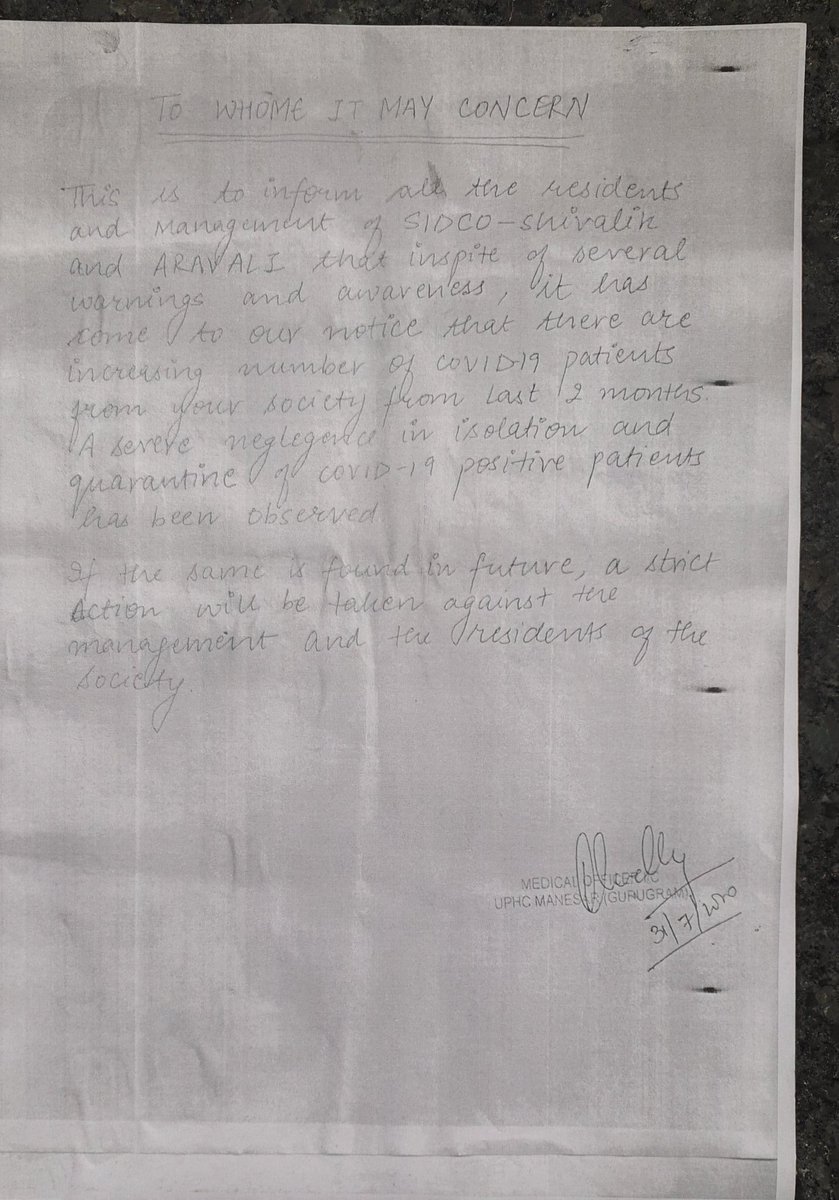 TO WHOME IT MAY CONCERN
This is to inform all the residents
and Management of SIDCO-Shivalik
and ARAVALI that inspite of several
warnings and awareness, it has
come to our notice that there are
increasing number of COVID19 patients
from your society from last 2 months.
A severe neglegence in isolation and
quarantine of COVID-19 positive patients
has been observed.
If the same is found in future, a strict
Action will be taken against the
management and the residents of the
society.
MEDICAL OFFICER I/C
UPHC MANESAR (GURUGRAM)
31/7/2020